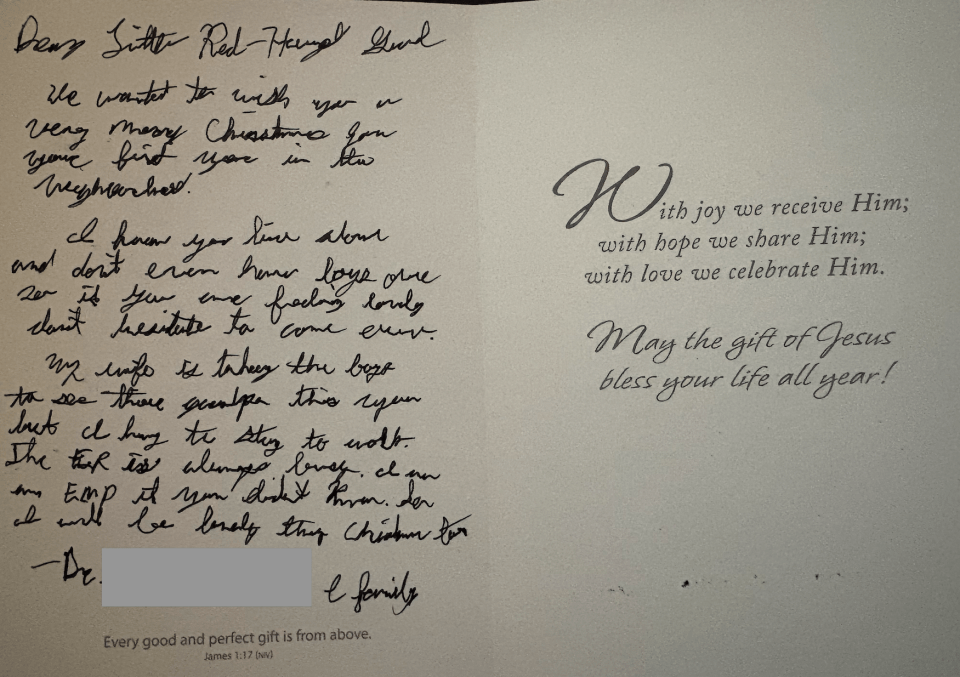 Dear Little Red-Haired Girl
We wanted to wish you a
very merry Christmas for
your first year in the
neighborhood.
I know you live alone
and don't even have boys over
so if you are feeling lonely
don't hesitate to come over.
My wife is taking the boys
to see there grandpa this year
but I have to stay to work.
The ER is always busy. I am
an EMP if you didn't know. So
I will be lonely this Christmas too
—Dr.
& family
Every good and perfect gift is from above.
James 1:17 (NIV)
With joy we receive Him;
with hope we share Him;
with love we celebrate Him.
May the gift of Jesus
bless your life all year!